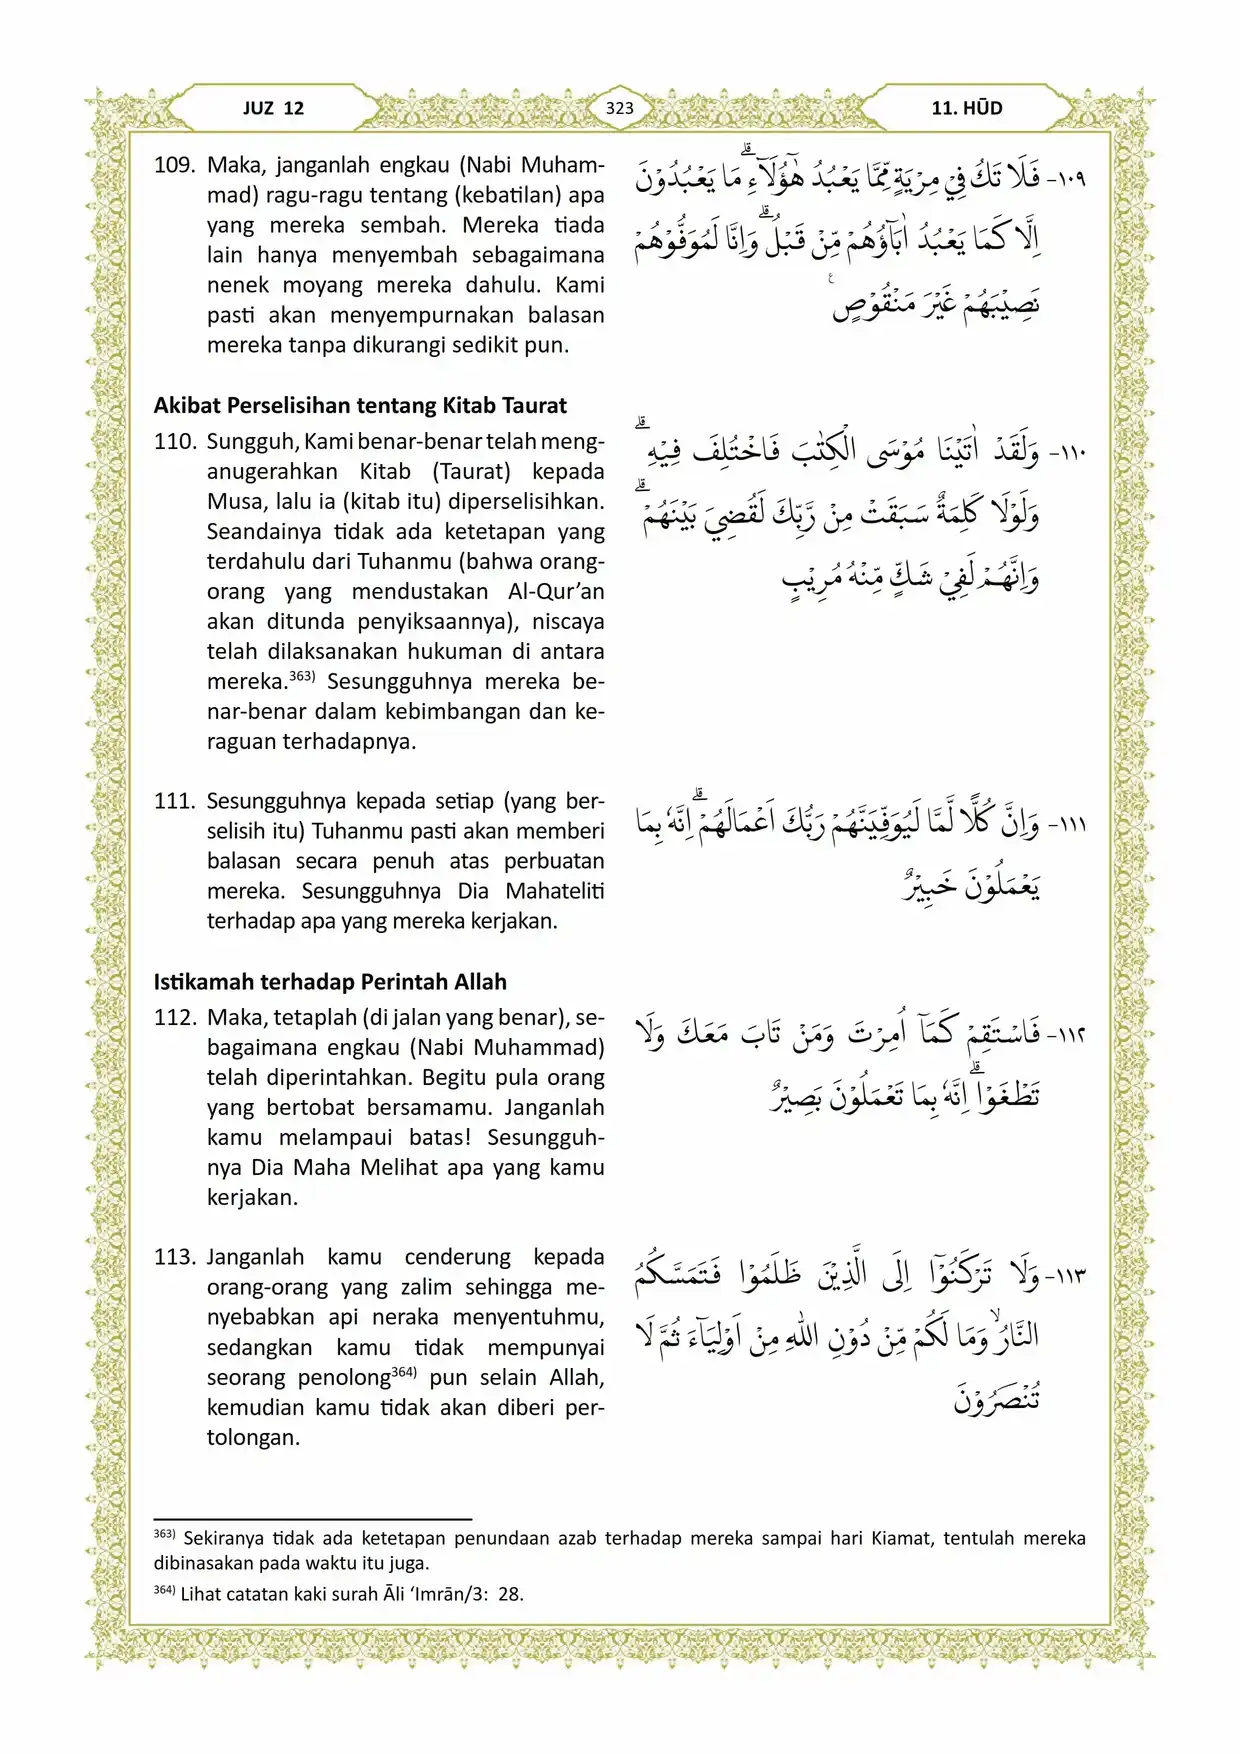 JUZ 12
323
11. HŪD
109. Maka, janganlah engkau (Nabi Muham-
mad) ragu-ragu tentang (kebatilan) apa
yang mereka sembah. Mereka tiada
lain hanya menyembah sebagaimana
nenek moyang mereka dahulu. Kami
pasti akan menyempurnakan balasan
mereka tanpa dikurangi sedikit pun.
١٠٩- فَلَا تَكُ فِيْ مِرْيَةٍ مِّمَّا يَعْبُدُ هٰٓؤُلَاۤءِ ۗمَا يَعْبُدُوْنَ
اِلَّا كَمَا يَعْبُدُ اٰبَاۤؤُهُمْ مِّنْ قَبْلُ ۗوَاِنَّا لَمُوَفُّوْهُمْ
نَصِيْبَهُمْ غَيْرَ مَنْقُوْصٍ ࣖ
Akibat Perselisihan tentang Kitab Taurat
110. Sungguh, Kami benar-benar telah meng-
anugerahkan Kitab (Taurat) kepada
Musa, lalu ia (kitab itu) diperselisihkan.
Seandainya tidak ada ketetapan yang
terdahulu dari Tuhanmu (bahwa orang-
orang yang mendustakan Al-Qur’an
akan ditunda penyiksaannya), niscaya
telah dilaksanakan hukuman di antara
mereka.363) Sesungguhnya mereka be-
nar-benar dalam kebimbangan dan ke-
raguan terhadapnya.
١١٠- وَلَقَدْ اٰتَيْنَا مُوْسَى الْكِتٰبَ فَاخْتُلِفَ فِيْهِ ۗ
وَلَوْلَا كَلِمَةٌ سَبَقَتْ مِنْ رَّبِّكَ لَقُضِيَ بَيْنَهُمْ ۗ
وَاِنَّهُمْ لَفِيْ شَكٍّ مِّنْهُ مُرِيْبٍ
111. Sesungguhnya kepada setiap (yang ber-
selisih itu) Tuhanmu pasti akan memberi
balasan secara penuh atas perbuatan
mereka. Sesungguhnya Dia Mahateliti
terhadap apa yang mereka kerjakan.
١١١- وَاِنَّ كُلًّا لَّمَّا لَيُوَفِّيَنَّهُمْ رَبُّكَ اَعْمَالَهُمْ ۗاِنَّهٗ بِمَا
يَعْمَلُوْنَ خَبِيْرٌ
Istikamah terhadap Perintah Allah
112. Maka, tetaplah (di jalan yang benar), se-
bagaimana engkau (Nabi Muhammad)
telah diperintahkan. Begitu pula orang
yang bertobat bersamamu. Janganlah
kamu melampaui batas! Sesungguh-
nya Dia Maha Melihat apa yang kamu
kerjakan.
١١٢- فَاسْتَقِمْ كَمَآ اُمِرْتَ وَمَنْ تَابَ مَعَكَ وَلَا
تَطْغَوْا ۗاِنَّهٗ بِمَا تَعْمَلُوْنَ بَصِيْرٌ
113. Janganlah kamu cenderung kepada
orang-orang yang zalim sehingga me-
nyebabkan api neraka menyentuhmu,
sedangkan kamu tidak mempunyai
seorang penolong364) pun selain Allah,
kemudian kamu tidak akan diberi per-
tolongan.
١١٣- وَلَا تَرْكَنُوْٓا اِلَى الَّذِيْنَ ظَلَمُوْا فَتَمَسَّكُمُ
النَّارُ ۙوَمَا لَكُمْ مِّنْ دُوْنِ اللّٰهِ مِنْ اَوْلِيَاۤءَ ثُمَّ لَا
تُنْصَرُوْنَ
363) Sekiranya tidak ada ketetapan penundaan azab terhadap mereka sampai hari Kiamat, tentulah mereka
dibinasakan pada waktu itu juga.
364) Lihat catatan kaki surah Āli ‘Imrān/3: 28.